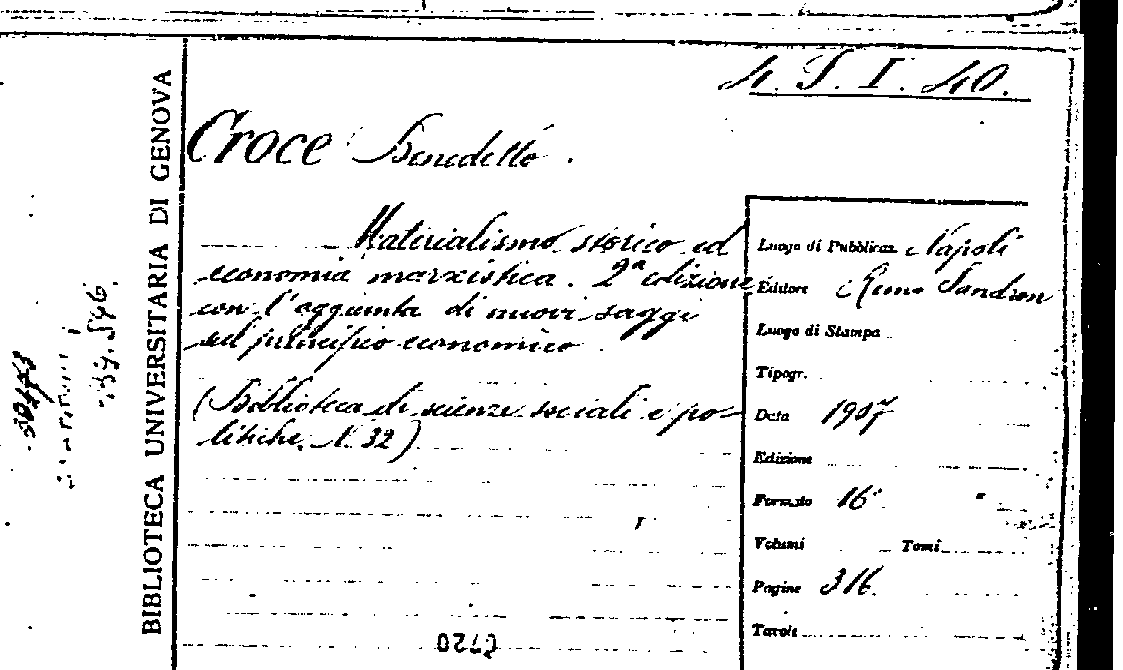 4. S. I. 40.
BIBLIOTECA UNIVERSITARIA DI GENOVA
Croce Benedetto.
Materialismo storico ed
economia marxistica. 2ª edizione
con l'aggiunta di nuovi saggi
sul principio economico.
(Biblioteca di scienze sociali e po=
litiche. N. 32)
Luogo di Pubblicaz. Napoli
Editore Remo Sandron
Luogo di Stampa
Tipogr.
Data 1907
Edizione
Formato 16°
Volumi Tomi
Pagine 316.
Tavole